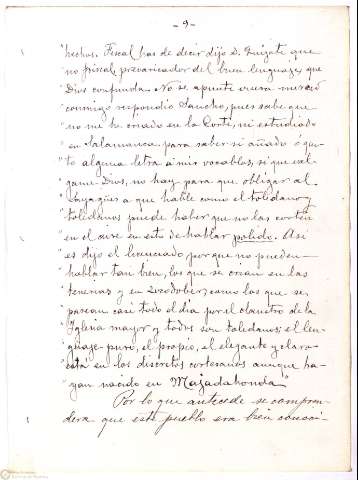 - 9 -
hechos. Fiscal has de decir dijo D. Quijote que
"no friscal, prevaricador del buen lenguaje, que
"Dios confunda. No se apunte vuesa merced
"conmigo respondio Sancho, pues sabe que
"no me he criado en la Corte, ni estudiado
"en Salamanca para saber si añado ó qui-
"to alguna letra a mis vocablos, si que val-
"game Dios, no hay para que obligar al
"Sayagües a que hable como el toledano, y
"toledanos puede haber que no las corten
"en el aire en esto de hablar polido. Asi
"es dijo el licenciado, porque no pueden
"hablar tan bien, los que se crian en las
"tenerias y en Zocodober, como los que se
"pasean casi todo el dia por el claustro de la
"Iglesia mayor y todos son toledanos; el len-
"guaje puro, el propio, el elegante y claro
"está en los discretos cortesanos aunque ha-
"yan nacido en Majadahonda"
Por lo que antecede se compren-
dera que este pueblo era bien conoci-